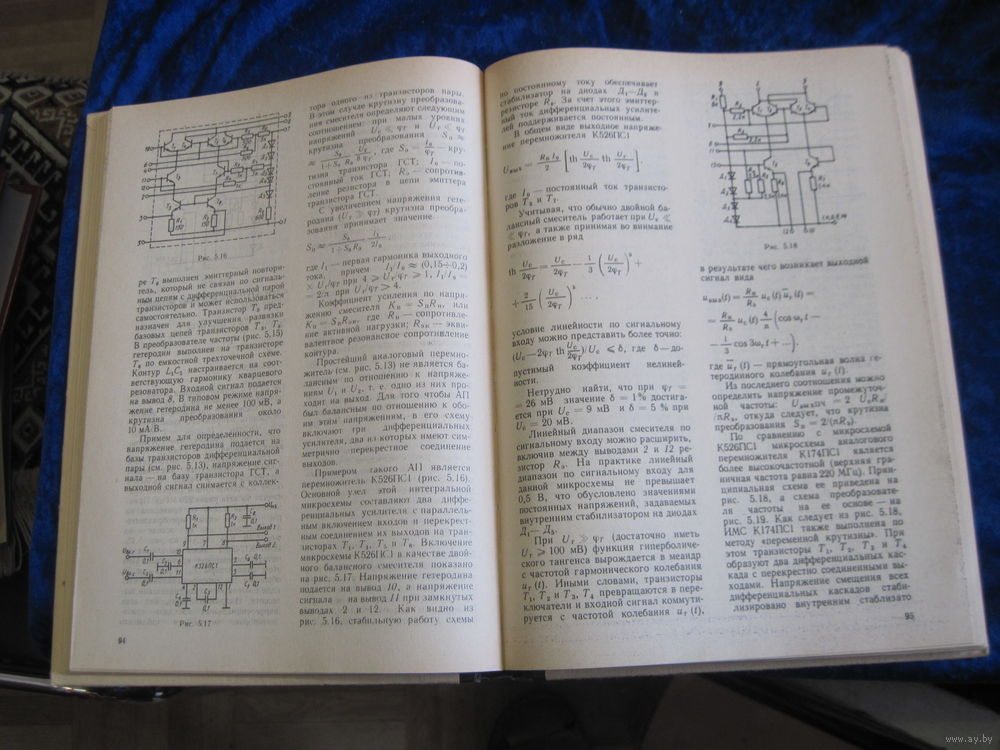 Рис. 5.16
ре T₉ выполнен эмиттерный повтори-
тель, который не связан по сигналь-
ным цепям с дифференциальной парой
транзисторов и может использоваться
самостоятельно. Транзистор T₃ пред-
назначен для улучшения развязки
базовых цепей транзисторов T₂, T₅.
В преобразователе частоты (рис. 5.15)
гетеродин выполнен на транзисторе
по емкостной трехточечной схеме.
Контур L₁C₃ настраивается на соот-
ветствующую гармонику кварцевого
резонатора. Входной сигнал подается
на вывод 8. В типовом режиме напря-
жение гетеродина не менее 100 мВ, а
крутизна преобразования около
10 мА/В.
Примем для определенности, что
напряжение гетеродина подается на
базы транзисторов дифференциальной
пары (см. рис. 5.13), напряжение сиг-
нала — на базу транзистора ГСТ, а
выходной сигнал снимается с коллек-
К526ПС1
Выход 1
Выход 2
Рис. 5.17
94
тора одного из транзисторов пары.
В этом случае крутизну преобразова-
ния смесителя определяют следующим
соотношением: при малых уровнях
напряжений U₀ ≪ φт и Uг ≪ φт
крутизна преобразования Sп ≈
где S₀ = — кру-
тизна транзистора ГСТ; I₀ — по-
стоянный ток ГСТ; Rэ — сопротив-
ление резистора в цепи эмиттера
транзистора ГСТ.
С увеличением напряжения гете-
родина (Uг ≫ φт) крутизна преобра-
зования принимает значение
Sп ≈ S₀/(1+S₀Rэ) I₁/2I₀,
где I₁ — первая гармоника выходного
тока, причем I₁/I₀ ≈ (0,15÷0,2)
× Uг/φт при 4 ⩾ Uг/φт ⩾ 1, I₁/I₀ =
= 2/π при Uг/φт > 4.
Коэффициент усиления по напря-
жению смесителя Kп = SпRн, или
Kп = SпRэн, где Rн — сопротивле-
ние активной нагрузки; Rэн — экви-
валентное резонансное сопротивление
контура.
Простейший аналоговый перемно-
житель (см. рис. 5.13) не является ба-
лансным по отношению к напряже-
ниям U₁ и U₂, т. е. одно из них про-
ходит на выход. Для того чтобы АП
был балансным по отношению к обо-
им этим напряжениям, в его схему
включают три дифференциальных
усилителя, два из которых имеют сим-
метрично перекрестное соединение
выходов.
Примером такого АП является
перемножитель К526ПС1 (рис. 5.16).
Основной узел этой интегральной
микросхемы составляют два диффе-
ренциальных усилителя с параллель-
ным включением входов и перекрест-
ным соединением их выходов на тран-
зисторах T₁, T₂, T₃ и T₄. Включение
микросхемы К526ПС1 в качестве двой-
ного балансного смесителя показано
на рис. 5.17. Напряжение гетеродина
подается на вывод 10, а напряжение
сигнала — на вывод 11 при замкнутых
выводах 2 и 12. Как видно из
рис. 5.16, стабильную работу схемы
по постоянному току обеспечивает
стабилизатор на диодах Д₁—Д₅ и
резисторе Rв. За счет этого эмиттер-
ный ток дифференциальных усилите-
лей поддерживается постоянным.
В общем виде выходное напряже-
ние перемножителя К526ПС1
Uвых = RнI₀/2 [th Uс/2φт th Uг/2φт],
где I₀ — постоянный ток транзисто-
ров и T₇.
Учитывая, что обычно двойной ба-
лансный смеситель работает при Uс ≪
≪ φт, а также принимая во внимание
разложение в ряд
th Uс/2φт = Uс/2φт − 1/3 (Uс/2φт)³ +
+ 2/15 (Uс/2φт)⁵ ... .
условие линейности по сигнальному
входу можно представить более точно:
(Uс—2φт th Uс/2φт)/Uс ⩽ δ, где δ—до-
пустимый коэффициент нелиней-
ности.
Нетрудно найти, что при φт =
= 26 мВ значение δ = 1% достига-
ется при Uс = 9 мВ и δ = 5 % при
Uс = 20 мВ.
Линейный диапазон смесителя по
сигнальному входу можно расширить,
включив между выводами 2 и 12 ре-
зистор Rэ. На практике линейный
диапазон по сигнальному входу для
данной микросхемы не превышает
0,5 В, что обусловлено значениями
постоянных напряжений, задаваемых
внутренним стабилизатором на диодах
Д₁—Д₅.
При Uг ≫ φт (достаточно иметь
Uг ⩾ 100 мВ) функция гиперболиче-
ского тангенса вырождается в меандр
с частотой гармонического колебания
uг (t). Иными словами, транзисторы
T₁, T₂ и T₃, T₄ превращаются в пере-
ключатели и входной сигнал коммути-
руется с частотой колебания uг (t),
Рис. 5.18
в результате чего возникает выходной
сигнал вида
uвых(t) = Rн/Rэ uс(t) ūг(t) =
= Rн/Rэ uс(t) 4/π (cos ωгt —
— 1/3 cos 3ωгt + ...).
где ūг (t) — прямоугольная волна ге-
теродинного колебания uг (t).
Из последнего соотношения можно
определить напряжение промежуточ-
ной частоты: = 2 UсRн/
/πRэ, откуда следует, что крутизна
преобразования Sп = 2/(πRэ).
По сравнению с микросхемой
К526ПС1 микросхема аналогового
перемножителя К174ПС1 является
более высокочастотной (верхняя гра-
ничная частота равна 220 МГц). Прин-
ципиальная схема ее приведена на
рис. 5.18, а схема преобразовате-
ля частоты на ее основе — на
рис. 5.19. Как следует из рис. 5.18,
ИМС К174ПС1 также выполнена по
методу «переменной крутизны». При
этом транзисторы T₁, T₂, T₃ и T₄
образуют два дифференциальных кас-
када с перекрестно соединенными вы-
ходами. Напряжение смещения всех
дифференциальных каскадов стаби-
лизировано внутренним стабилизато
95
www.ay.by